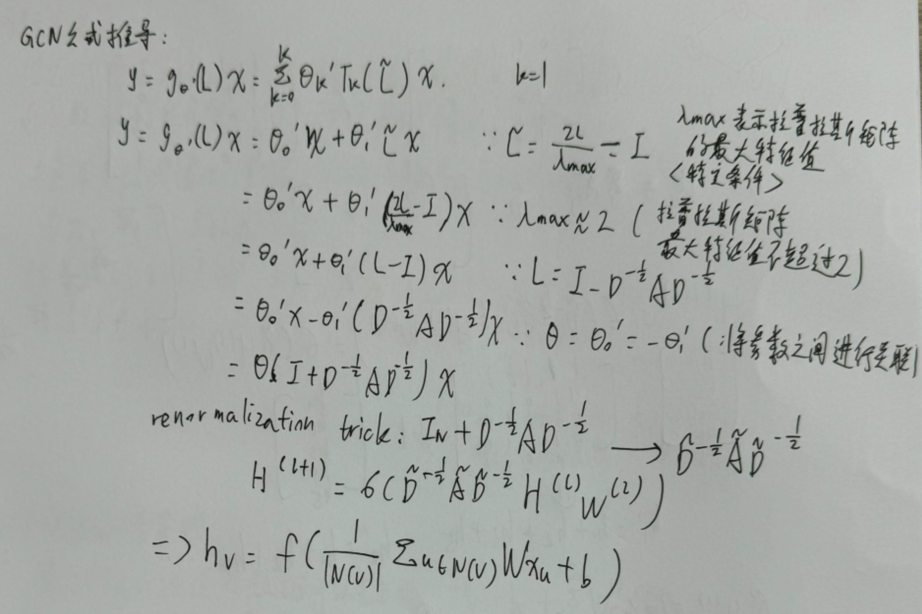 GCN公式推导:
y = gθ'(L)x = Σ_{k=0}^{K} θk' Tk(L̃) x. k=1
y = gθ'(L)x = θ0'x + θ1' L̃ x ∵ L̃ = 2L/λmax − I λmax表示拉普拉斯矩阵
的最大特征值
= θ0'x + θ1'(2L/λmax − I)x ∵ λmax≈2 (拉普拉斯矩阵
最大特征值不超过2)
= θ0'x + θ1'(L−I)x ∵ L = I − D^{-1/2}AD^{-1/2}
= θ0'x − θ1'(D^{-1/2}AD^{-1/2})x ∵ θ = θ0' = −θ1' (将参数之间进行关联)
= θ(I + D^{-1/2}AD^{-1/2})x
renormalization trick: IN + D^{-1/2}AD^{-1/2} → D̃^{-1/2}ÃD̃^{-1/2}
H^{(l+1)} = σ(D̃^{-1/2}ÃD̃^{-1/2}H^{(l)}W^{(l)})
=> hv = f(1/|N(v)| Σu∈N(v) Wxu + b)